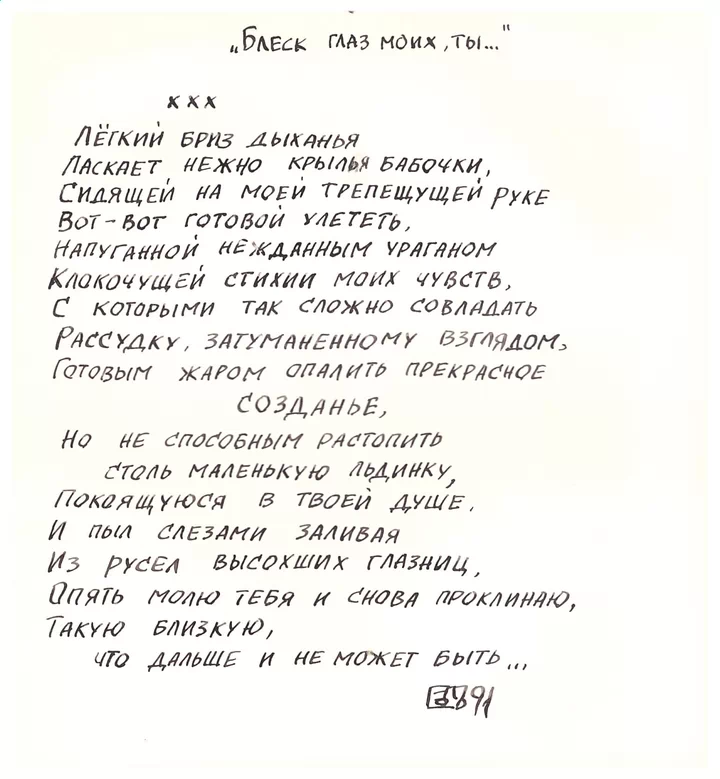 „Блеск глаз моих, ты..."
х х х
Лёгкий бриз дыханья
Ласкает нежно крылья бабочки,
Сидящей на моей трепещущей руке
Вот-вот готовой улететь,
Напуганной нежданным ураганом
Клокочущей стихии моих чувств,
С которыми так сложно совладать
Рассудку, затуманенному взглядом,
Готовым жаром опалить прекрасное
созданье,
Но не способным растопить
столь маленькую льдинку,
Покоящуюся в твоей душе.
И пыл слезами заливая
Из русел высохших глазниц,
Опять молю тебя и снова проклинаю,
Такую близкую,
что дальше и не может быть...
91